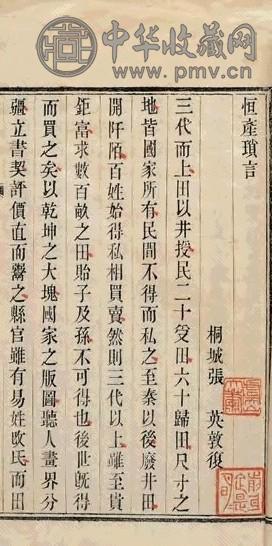 中华收藏网
www.pmv.cn
恒產瑣言
桐城張 英敦復
三代而上田以井授民二十受田六十歸田尺寸之
地皆國家所有民間不得而私之至秦以後廢井田
開阡陌百姓始得私相買賣然則三代以上雖至貴
鉅富求數百畝之田貽子及孫不可得也後世旣得
而買之矣以乾坤之大塊國家之版圖聽人畫界分
疆立書契評價直而鬻之縣官雖有易姓改氏而田